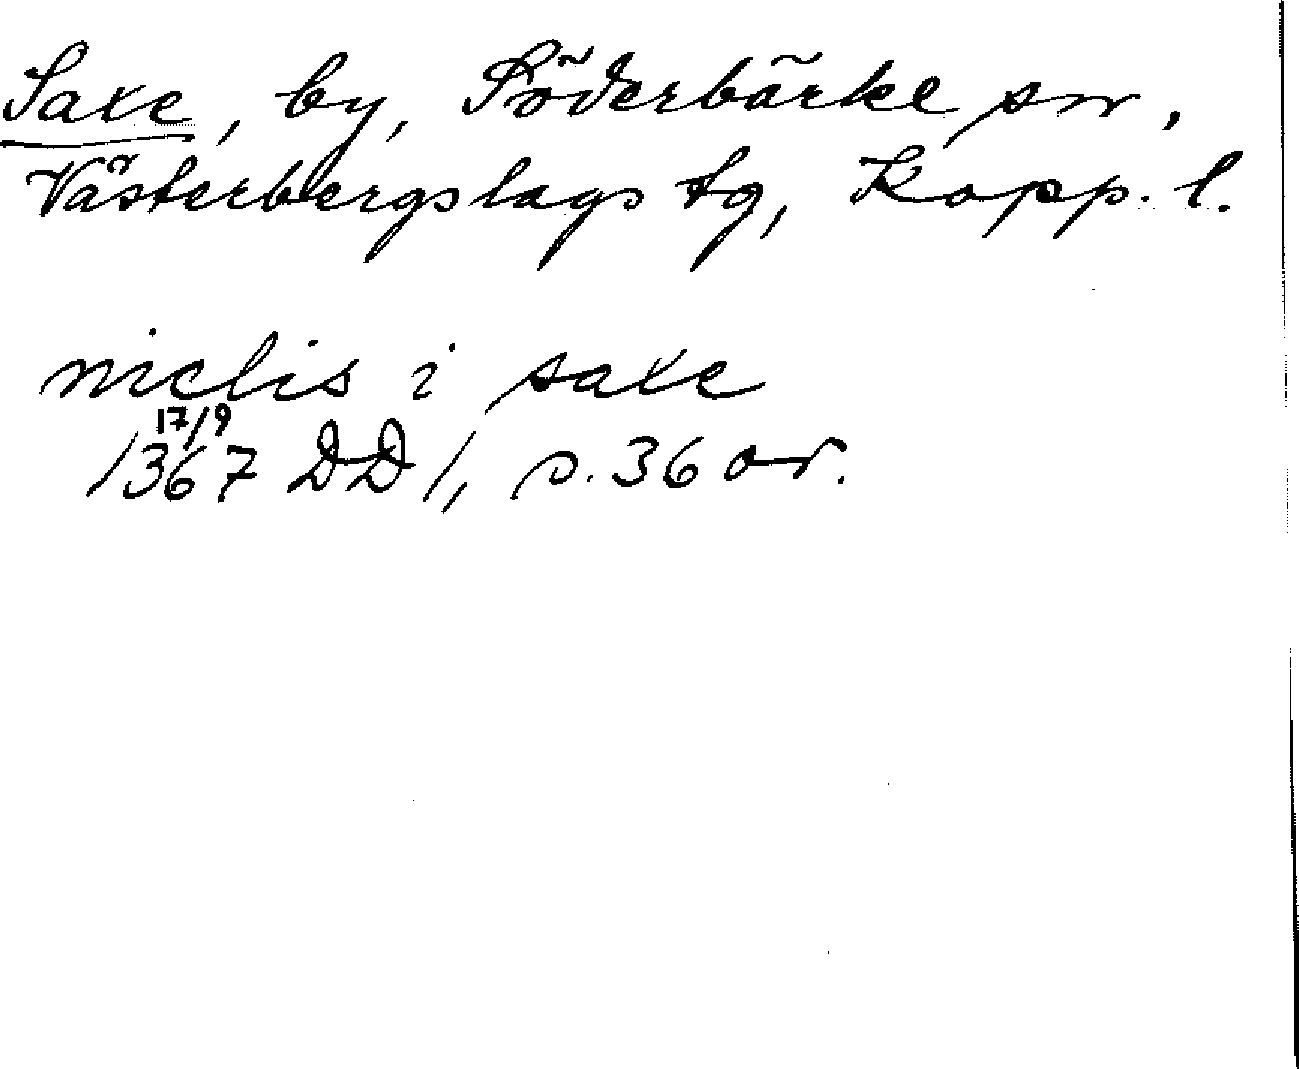 Saxe, by, Söderbärke sn,
Västerbergslags tg, Kopp. l.
niclis i saxe
17/9
1367 DD 1, s. 36 or.